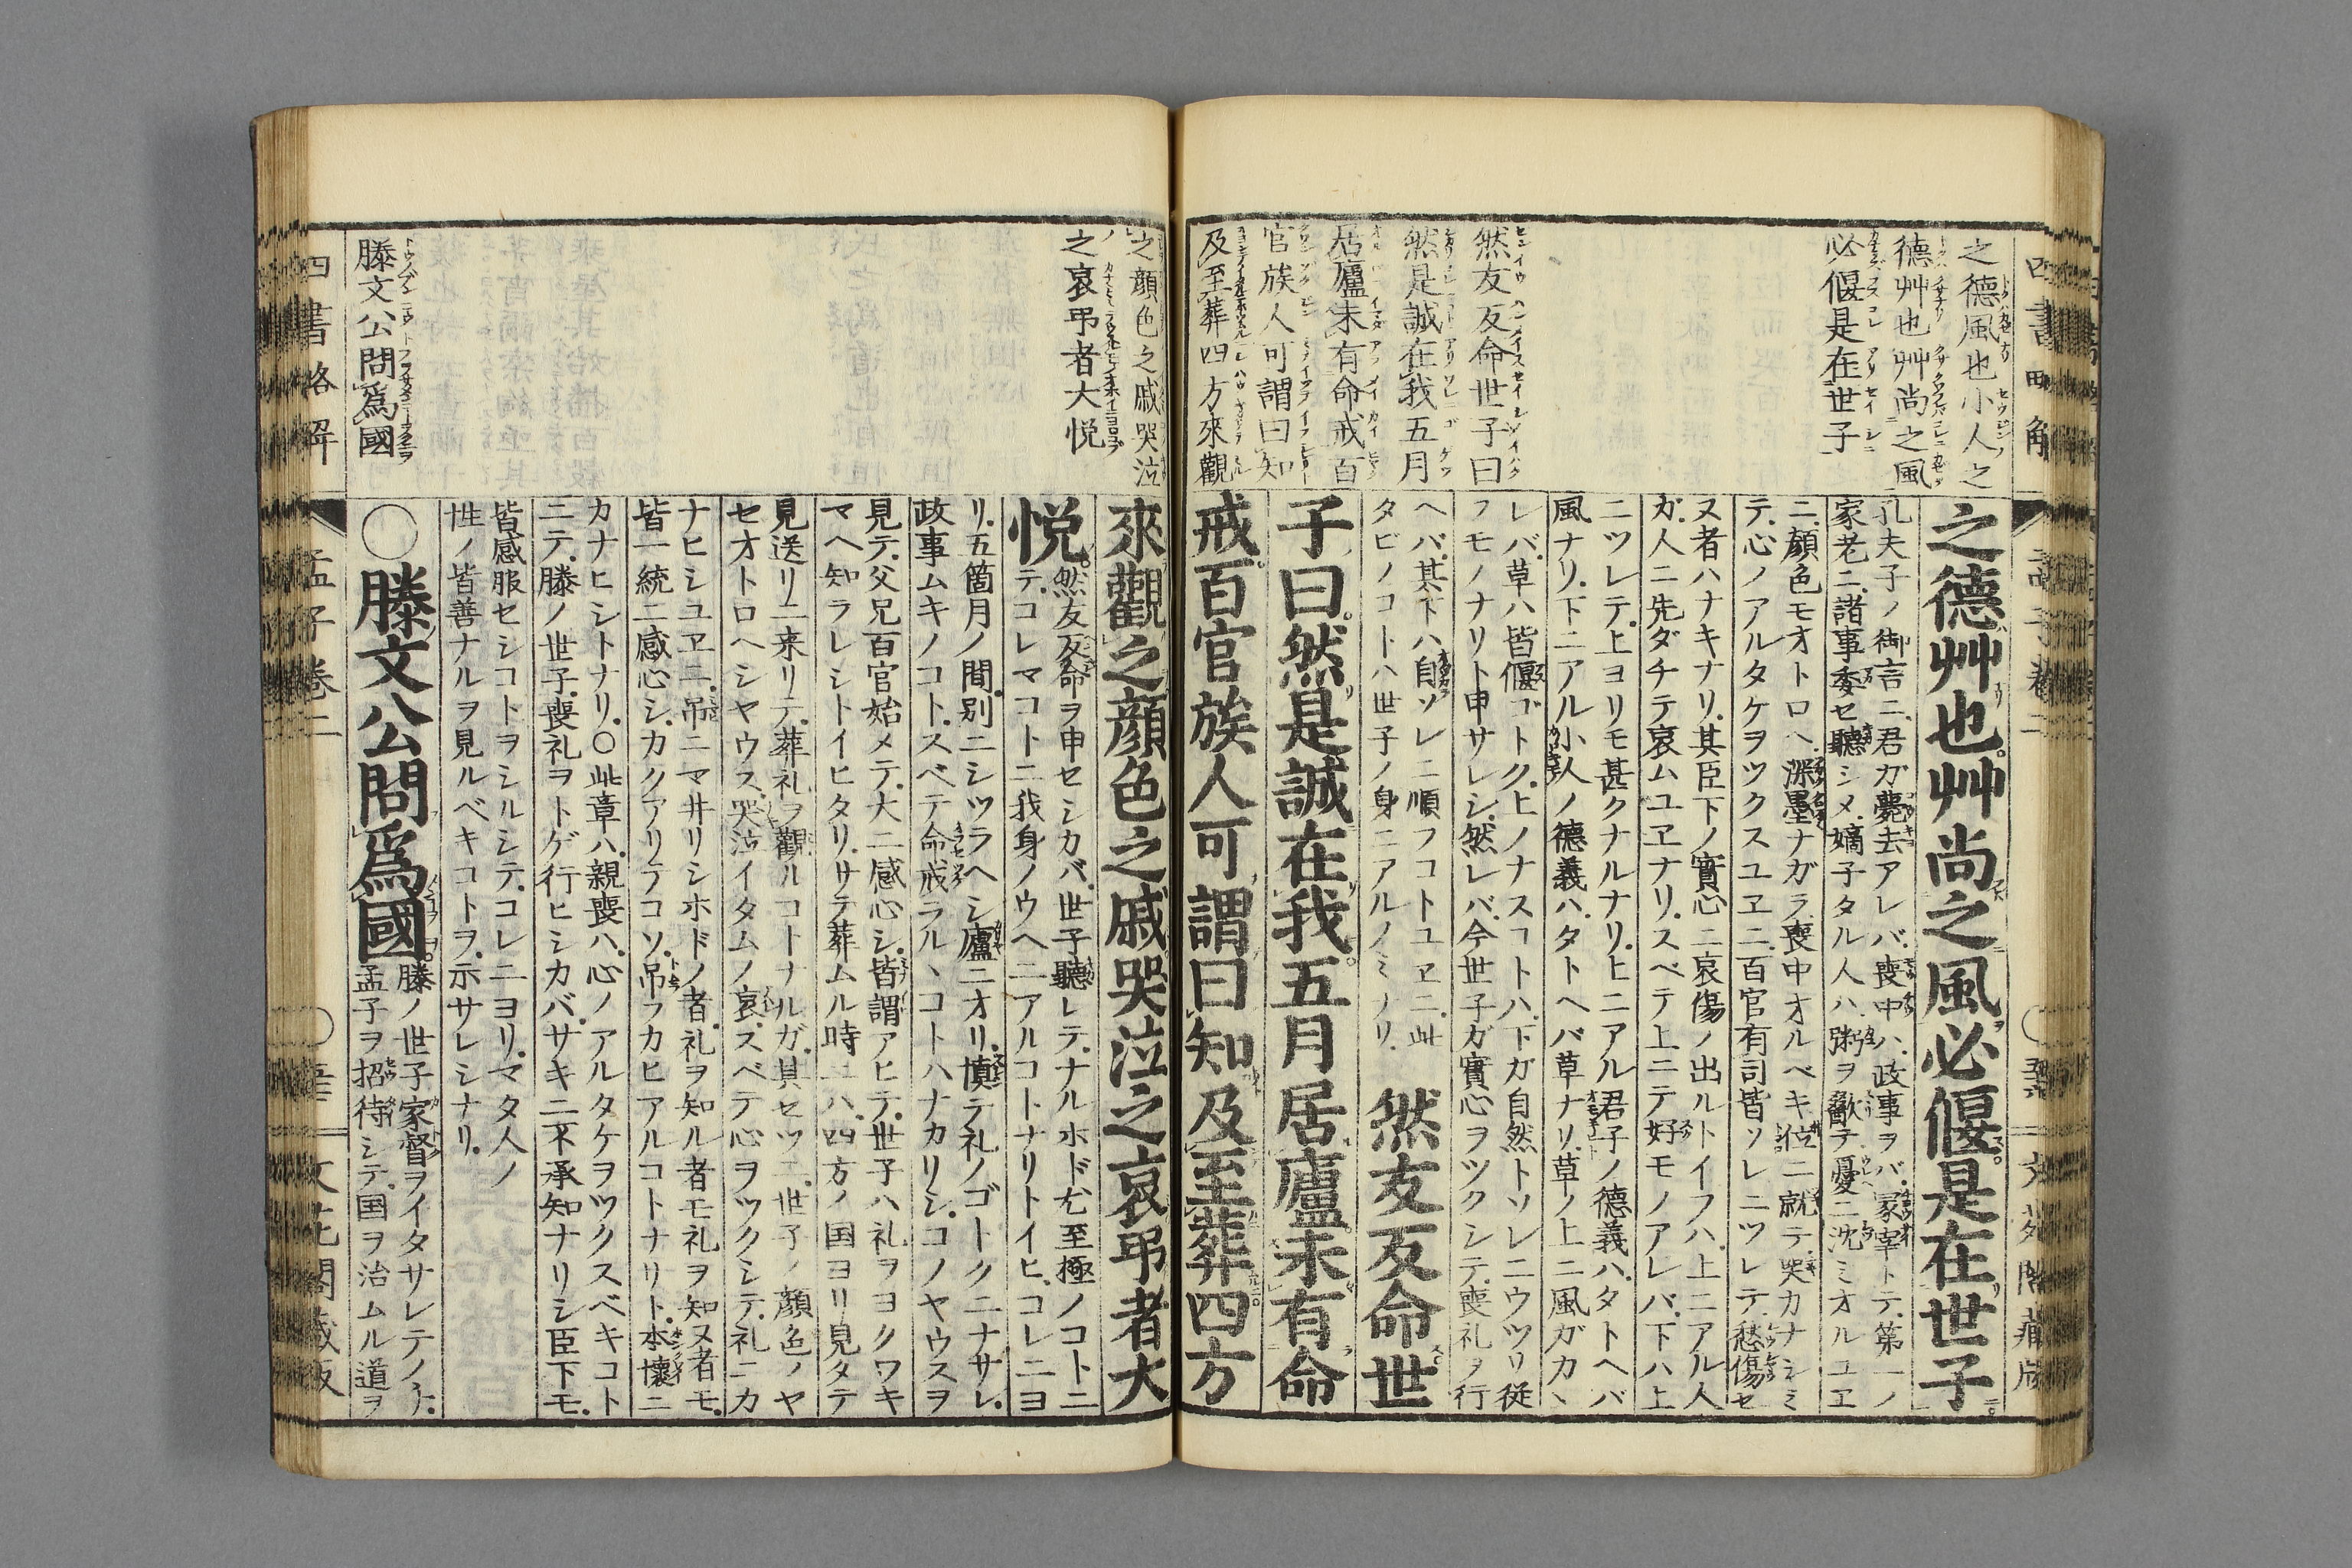 之德風也小人之
德艸也艸尚之風
必偃是在世子
然友反命世子曰
然是誠在我五月
居廬未有命戒百
官族人可謂曰知
及至葬四方來觀
之德艸也艸尚之風必偃是在世子
孔夫子ノ御言ニ君ガ薨去アレバ喪中ハ政事ヲバ冢宰トテ第一ノ
家老ニ諸事委セ聽シメ嫡子タル人ハ粥ヲ歠テ憂ニ沈ミオルユヱ
ニ顔色モオトロヘ深墨ナガラ喪中オルベキ位ニ就テ哭カナシミ
テ心ノアルタケヲツクスユヱニ百官有司皆ソレニツレテ愁傷セ
ヌ者ハナキナリ其臣下ノ實心ニ哀傷ノ出ルトイフハ上ニアル人
ガ人ニ先ダチテ哀ムユヱナリスベテ上ニテ好モノアレバ下ハ上
ニツレテ上ヨリモ甚クナルナリ上ニアル君子ノ德義ハタトヘバ
風ナリ下ニアル小人ノ德義ハタトヘバ草ナリ草ノ上ニ風ガカヽ
レバ草ハ皆偃ゴトク上ノナスコトハ下ガ自然トソレニウツリ從
フモノナリト申サレシ然レバ今世子ガ實心ヲツクシテ喪礼ヲ行
ヘバ其下ハ自ソレニ順フコトユヱニ此
タビノコトハ世子ノ身ニアルノミナリ
然友反命世
子曰然是誠在我五月居廬未有命
戒百官族人可謂曰知及至葬四方
四書略解
孟子卷二
文苑閣蔵版
之顔色之戚哭泣
之哀弔者大悦
滕文公問爲國
來觀之顔色之戚哭泣之哀弔者大
悦
然友反命ヲ申セシカバ世子聽レテナルホド尤至極ノコトニ
テコレマコトニ我身ノウヘニアルコトナリトイヒコレニヨ
リ五箇月ノ間別ニシツラヘシ廬ニオリ慎テ礼ノゴトクニナサレ
政事ムキノコトスベテ命戒ラルヽコトハナカリシコノヤウスヲ
見テ父兄百官始メテ大ニ感心シ皆謂アヒテ世子ハ礼ヲヨクワキ
マヘ知ラレシトイヒタリサテ葬ムル時ニハ四方ノ国ヨリ見タテ
見送リニ来リテ葬礼ヲ觀ルコトナルガ其セツニ世子ノ顔色ノヤ
セオトロヘシヤウス哭泣イタムノ哀スベテ心ヲツクシテ礼ニカ
ナヒシユヱニ吊ニマ井リシホドノ者礼ヲ知ル者モ礼ヲ知ヌ者モ
皆一統ニ感心シカクアリテコソ吊ラカヒアルコトナリト本懷ニ
カナヒシトナリ〇此章ハ親喪ハ心ノアルタケヲツクスベキコト
ニテ滕ノ世子喪礼ヲトゲ行ヒシカバサキニ不承知ナリシ臣下モ
皆感服セシコトヲシルシテコレニヨリマタ人ノ
性ノ皆善ナルヲ見ルベキコトヲ示サレシナリ
〇滕文公問爲國
滕ノ世子家督ヲイタサレテノチ
孟子ヲ招待シテ国ヲ治ムル道ヲ
四書略解
孟子卷二